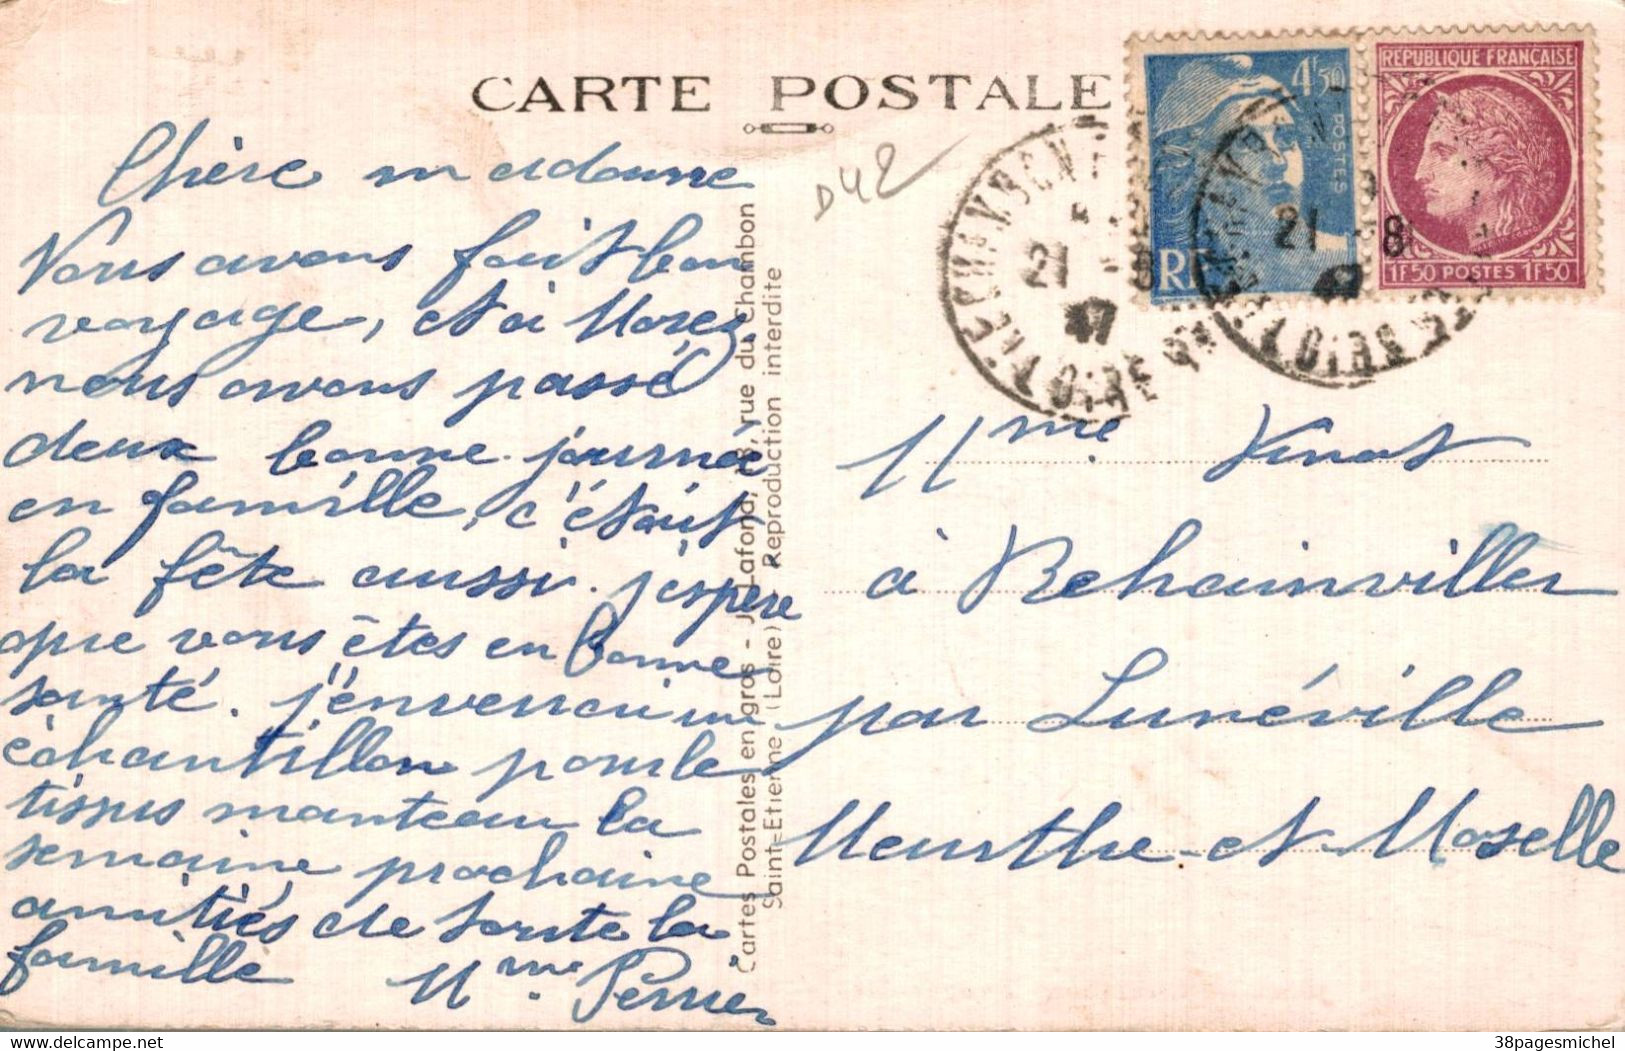 CARTE POSTALE
D42
Chère madame
Nous avons fait bon
voyage, et à Morez
nous avons passé
deux bonne journée
en famille, c'était
la fête aussi. j'espère
que vous êtes en bonne
santé. j'enverrai un
échantillon pour le
tissus manteau la
semaine prochaine
amitiés de toute la
famille Mme Perrier
Cartes Postales en gros - J. Lafond, 18, rue du Chambon
Saint-Etienne (Loire) Reproduction interdite
4F50
POSTES
RF
RÉPUBLIQUE FRANÇAISE
1F50 POSTES 1F50
LE CHAMBON
21 - 8
47
LOIRE
21 - 8
47
LOIRE
Mme Vinot
à Rehainviller
par Lunéville
Meurthe-et-Moselle
38pagesmichel